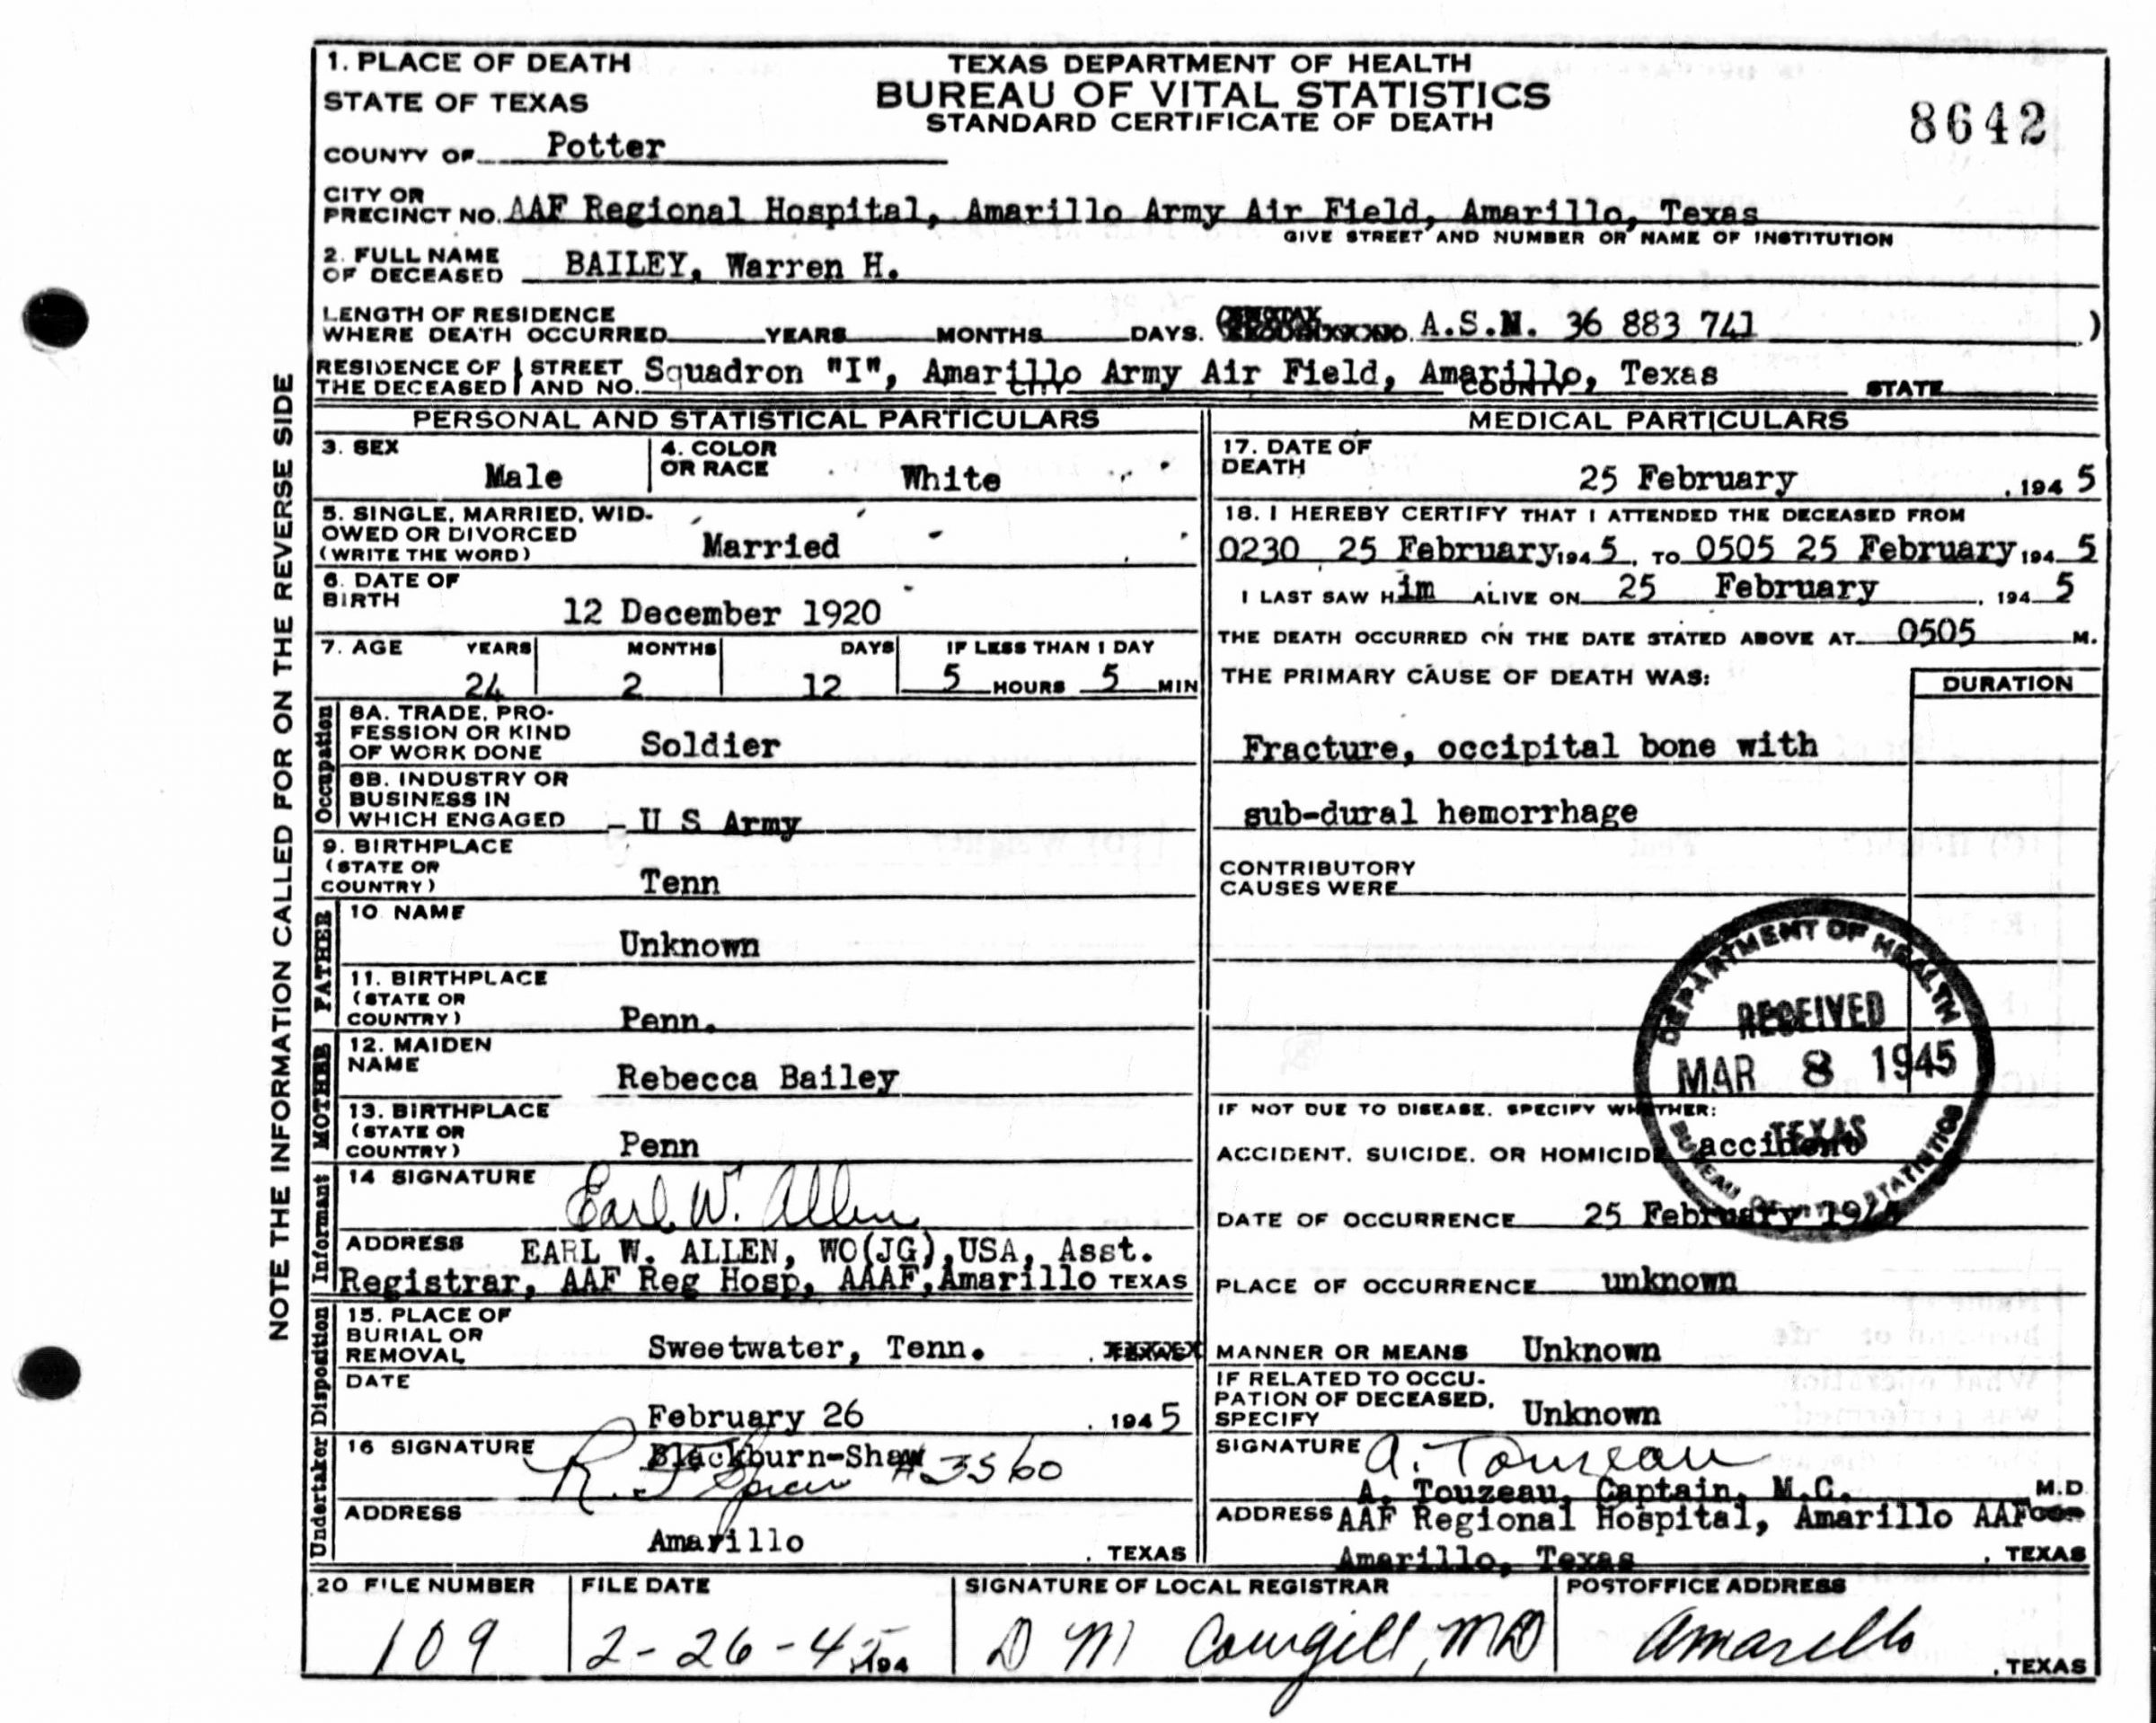 1. PLACE OF DEATH
STATE OF TEXAS
COUNTY OF Potter
TEXAS DEPARTMENT OF HEALTH
BUREAU OF VITAL STATISTICS
STANDARD CERTIFICATE OF DEATH
8642
CITY OR
PRECINCT NO. AAF Regional Hospital, Amarillo Army Air Field, Amarillo, Texas
GIVE STREET AND NUMBER OR NAME OF INSTITUTION
2. FULL NAME
OF DECEASED BAILEY, Warren H.
LENGTH OF RESIDENCE
WHERE DEATH OCCURRED YEARS MONTHS DAYS. ( A.S.N. 36 883 741 )
RESIDENCE OF THE DECEASED STREET AND NO. Squadron "I", Amarillo Army Air Field, Amarillo, Texas
CITY COUNTY STATE
NOTE THE INFORMATION CALLED FOR ON THE REVERSE SIDE
PERSONAL AND STATISTICAL PARTICULARS
3. SEX
Male
4. COLOR
OR RACE
White
5. SINGLE, MARRIED, WID-
OWED OR DIVORCED
(WRITE THE WORD) Married
6. DATE OF
BIRTH
12 December 1920
7. AGE YEARS MONTHS DAYS IF LESS THAN 1 DAY
24 2 12 5 HOURS 5 MIN
Occupation
8A. TRADE, PRO-
FESSION OR KIND
OF WORK DONE Soldier
8B. INDUSTRY OR
BUSINESS IN
WHICH ENGAGED - U S Army
9. BIRTHPLACE
(STATE OR
COUNTRY) Tenn
FATHER
10 NAME
Unknown
11. BIRTHPLACE
(STATE OR
COUNTRY) Penn.
MOTHER
12. MAIDEN
NAME
Rebecca Bailey
13. BIRTHPLACE
(STATE OR
COUNTRY) Penn
Informant
14 SIGNATURE Earl W. Allen
ADDRESS EARL W. ALLEN, WO(JG),USA, Asst.
Registrar, AAF Reg Hosp, AAAF,Amarillo TEXAS
Disposition
15. PLACE OF
BURIAL OR
REMOVAL Sweetwater, Tenn.
DATE
February 26 , 1945
Undertaker
16 SIGNATURE Blackburn-Shaw
#3560
ADDRESS
Amarillo , TEXAS
MEDICAL PARTICULARS
17. DATE OF
DEATH 25 February , 1945
18. I HEREBY CERTIFY THAT I ATTENDED THE DECEASED FROM
0230 25 February, 1945, TO 0505 25 February 1945
I LAST SAW Him ALIVE ON 25 February , 1945
THE DEATH OCCURRED ON THE DATE STATED ABOVE AT 0505 M.
THE PRIMARY CAUSE OF DEATH WAS: DURATION
Fracture, occipital bone with
sub-dural hemorrhage
CONTRIBUTORY
CAUSES WERE
DEPARTMENT OF HEALTH
RECEIVED
MAR 8 1945
TEXAS
BUREAU OF VITAL STATISTICS
IF NOT DUE TO DISEASE, SPECIFY WHETHER:
ACCIDENT, SUICIDE, OR HOMICIDE accident
DATE OF OCCURRENCE 25 February 1945
PLACE OF OCCURRENCE unknown
MANNER OR MEANS Unknown
IF RELATED TO OCCU-
PATION OF DECEASED,
SPECIFY Unknown
SIGNATURE A. Touzeau
A. Touzeau, Captain, M.C. M.D.
ADDRESS AAF Regional Hospital, Amarillo AAF
Amarillo, Texas , TEXAS
20 FILE NUMBER FILE DATE SIGNATURE OF LOCAL REGISTRAR POSTOFFICE ADDRESS
109 2-26-45 194 D M Cowgill, MD Amarillo , TEXAS